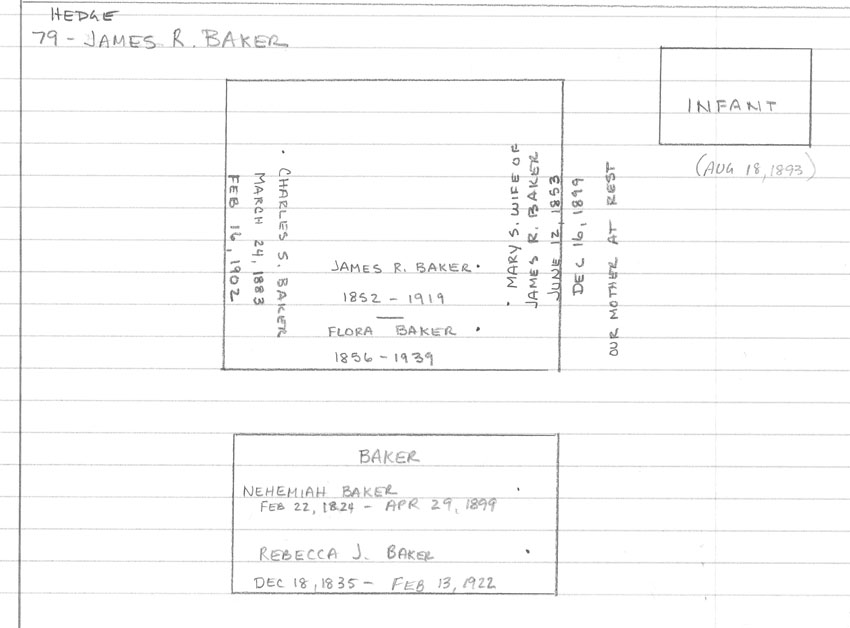 HEDGE
79 - JAMES R. BAKER
INFANT
(AUG 18, 1893)
• CHARLES S. BAKER
MARCH 24, 1883
FEB 16, 1902
JAMES R. BAKER •
1852 - 1919
FLORA BAKER •
1856 - 1939
• MARY S. WIFE OF
JAMES R. BAKER
JUNE 12, 1853
DEC 16, 1899
OUR MOTHER AT REST
BAKER
NEHEMIAH BAKER •
FEB 22, 1824 - APR 29, 1899
REBECCA J. BAKER •
DEC 18, 1835 - FEB 13, 1922